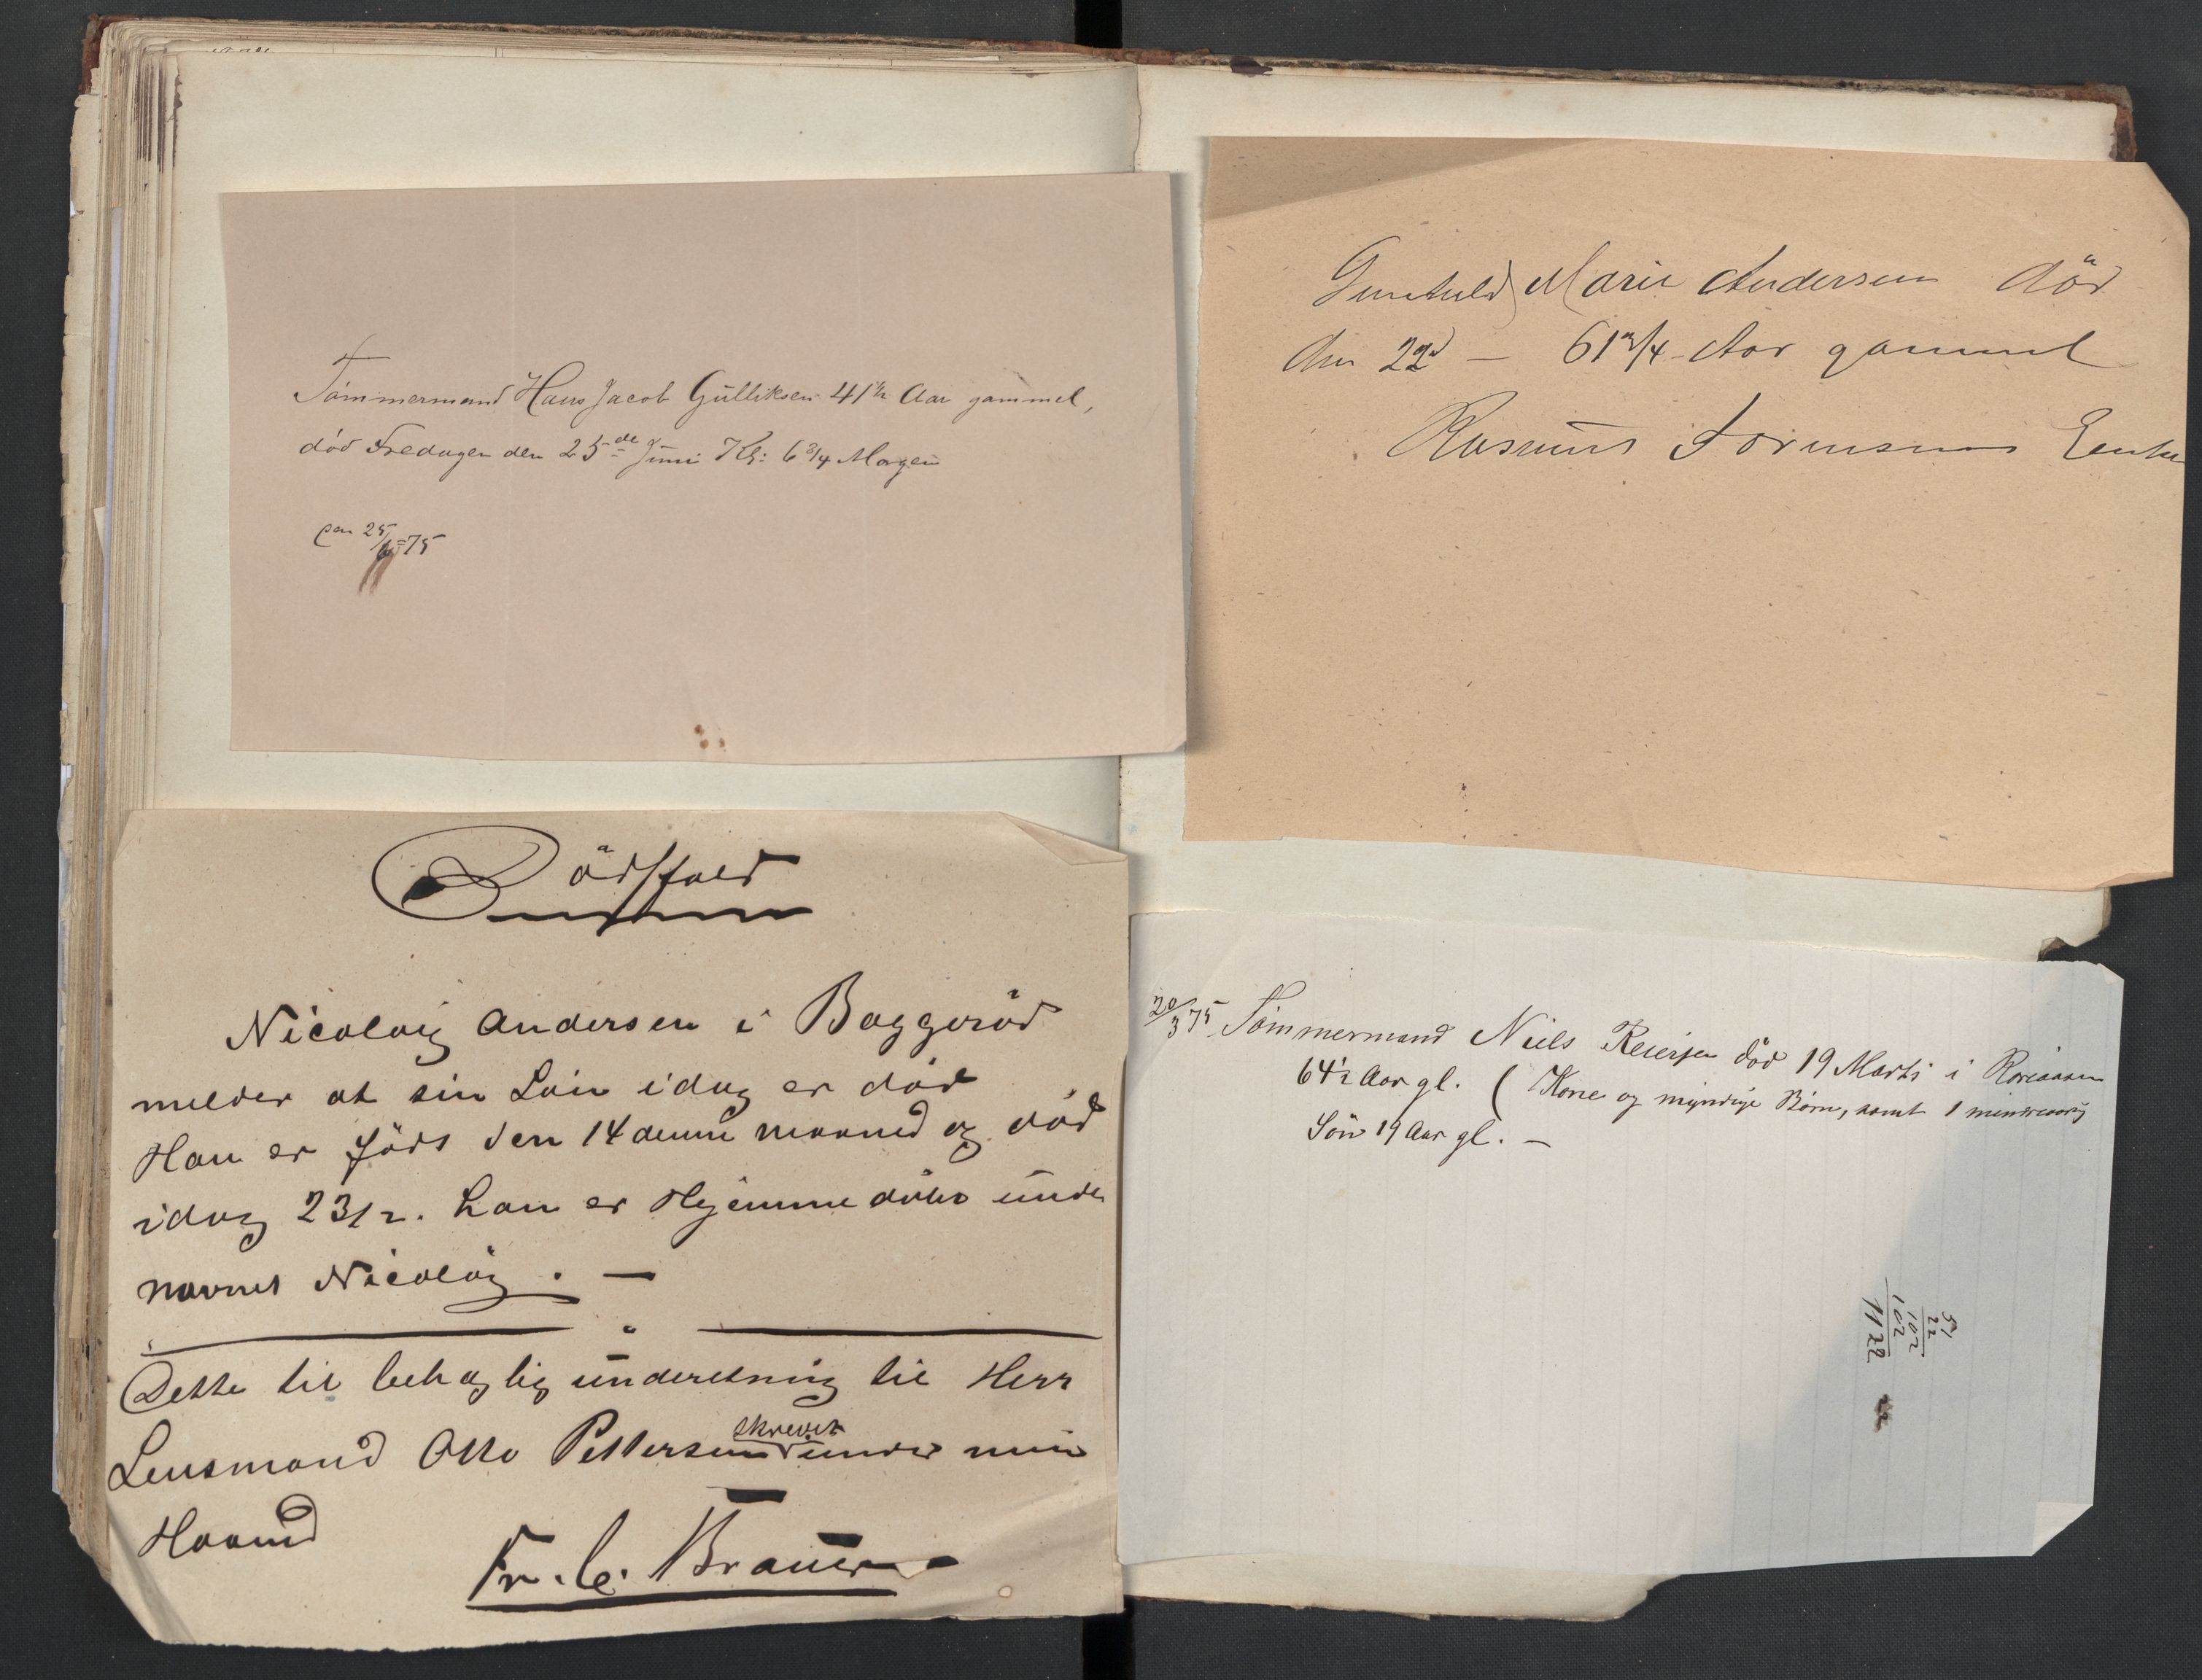 Tömmermand Hans Jacob Gulliksen 41½ Aar gammel,
död Fredagen den 25de Juni Kl: 6¾ Morgen
25/6=75
Gunhild Marie Andersen död
den 22d — 61¾ Aar gammel
Rasmus Sörensens Enke
Dödsfald
Nicolaij Andersen i Baggeröd
melder at sin Sön idag er död
Han er föds den 14 denne maaned og död
idag 23/2. han er Hjemmedöbt under
navnet Nicolaij . —
Dette til behaglig underetning til Herr
Lensmand Otto Pettersen skrevet under min
Haand
Fr. C. Brauer
20/3 75 Tömmermand Niels Reiersen död 19 Marts i
64½ Aar gl. ( Kone og myndige Börn, samt 1 mindreaarig
Sön 19 Aar gl. —
51
22
102
102
1122